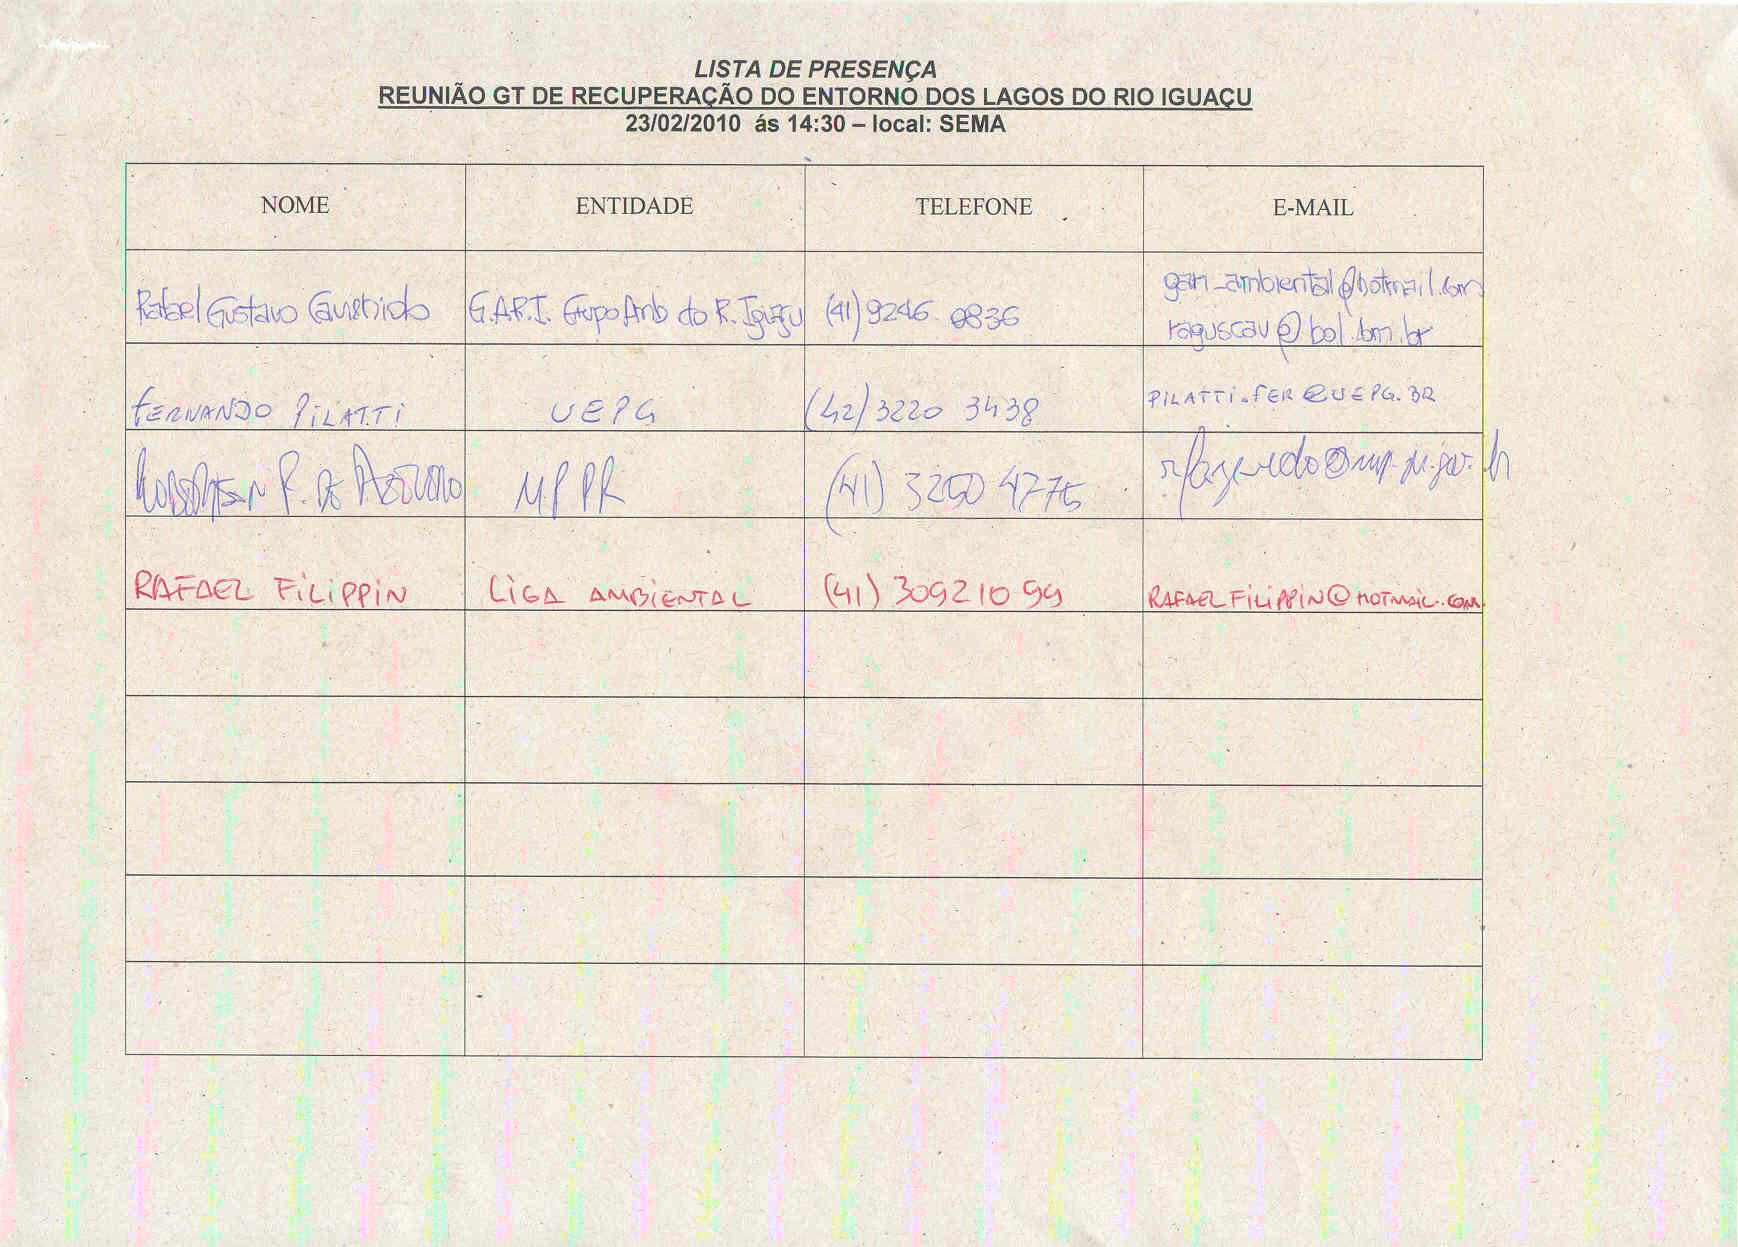 LISTA DE PRESENÇA
REUNIÃO GT DE RECUPERAÇÃO DO ENTORNO DOS LAGOS DO RIO IGUAÇU
23/02/2010 ás 14:30 – local: SEMA
NOME ENTIDADE TELEFONE E-MAIL
gari_ambiental@hotmail.com
Rafael Gustavo G.A.R.I. Grupo Amb do R. Iguaçu (41) 9246 0836
raguscav@bol.com.br
FERNANDO PILATTI UEPG (42) 3220 3438 PILATTI.FER@UEPG.BR
P. DE AZEVEDO MPPR (41) 3250 4776
RAFAEL FILIPPIN LIGA AMBIENTAL (41) 30921099 RAFAELFILIPPIN@HOTMAIL.COM